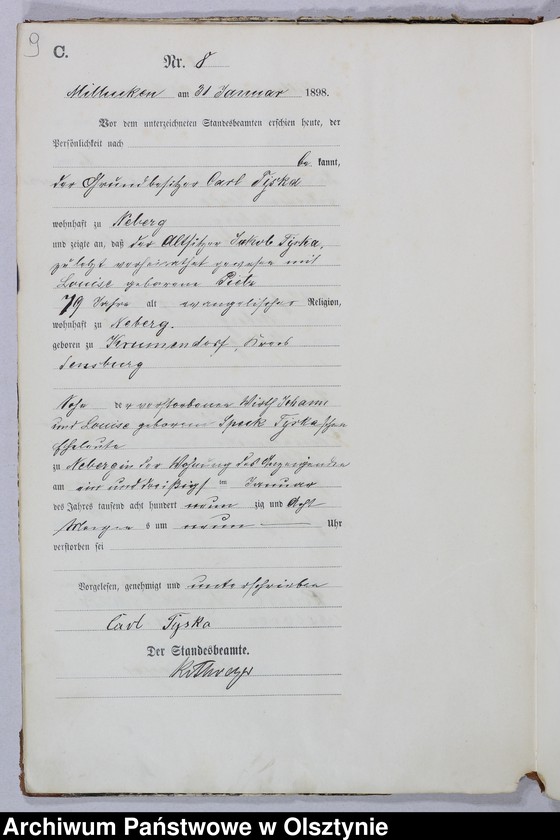 9
C.
Nr. 8
Millucken am 31 Januar 1898.
Vor dem unterzeichneten Standesbeamten erschien heute, der
Persönlichkeit nach
be kannt,
der Grundbesitzer Carl Tyska
wohnhaft zu Neberg
und zeigte an, daß der Altsitzer Jakob Tyska,
zuletzt verheirathet gewesen mit
Louise geborene
79 Jahre alt evangelischer Religion,
wohnhaft zu Neberg.
geboren zu Krummendorf, Kreis
Sensburg
Sohn der verstorbenen Wirth Johann
und Louise geborene Speck Tyska'schen
Eheleute
zu Neberg in der Wohnung des Anzeigenden
am ein und dreißigst en Januar
des Jahres tausend acht hundert neun zig und Acht
Morgen s um neun Uhr
verstorben sei
Vorgelesen, genehmigt und unterschrieben
Carl Tyska
Der Standesbeamte.
Archiwum Państwowe w Olsztynie